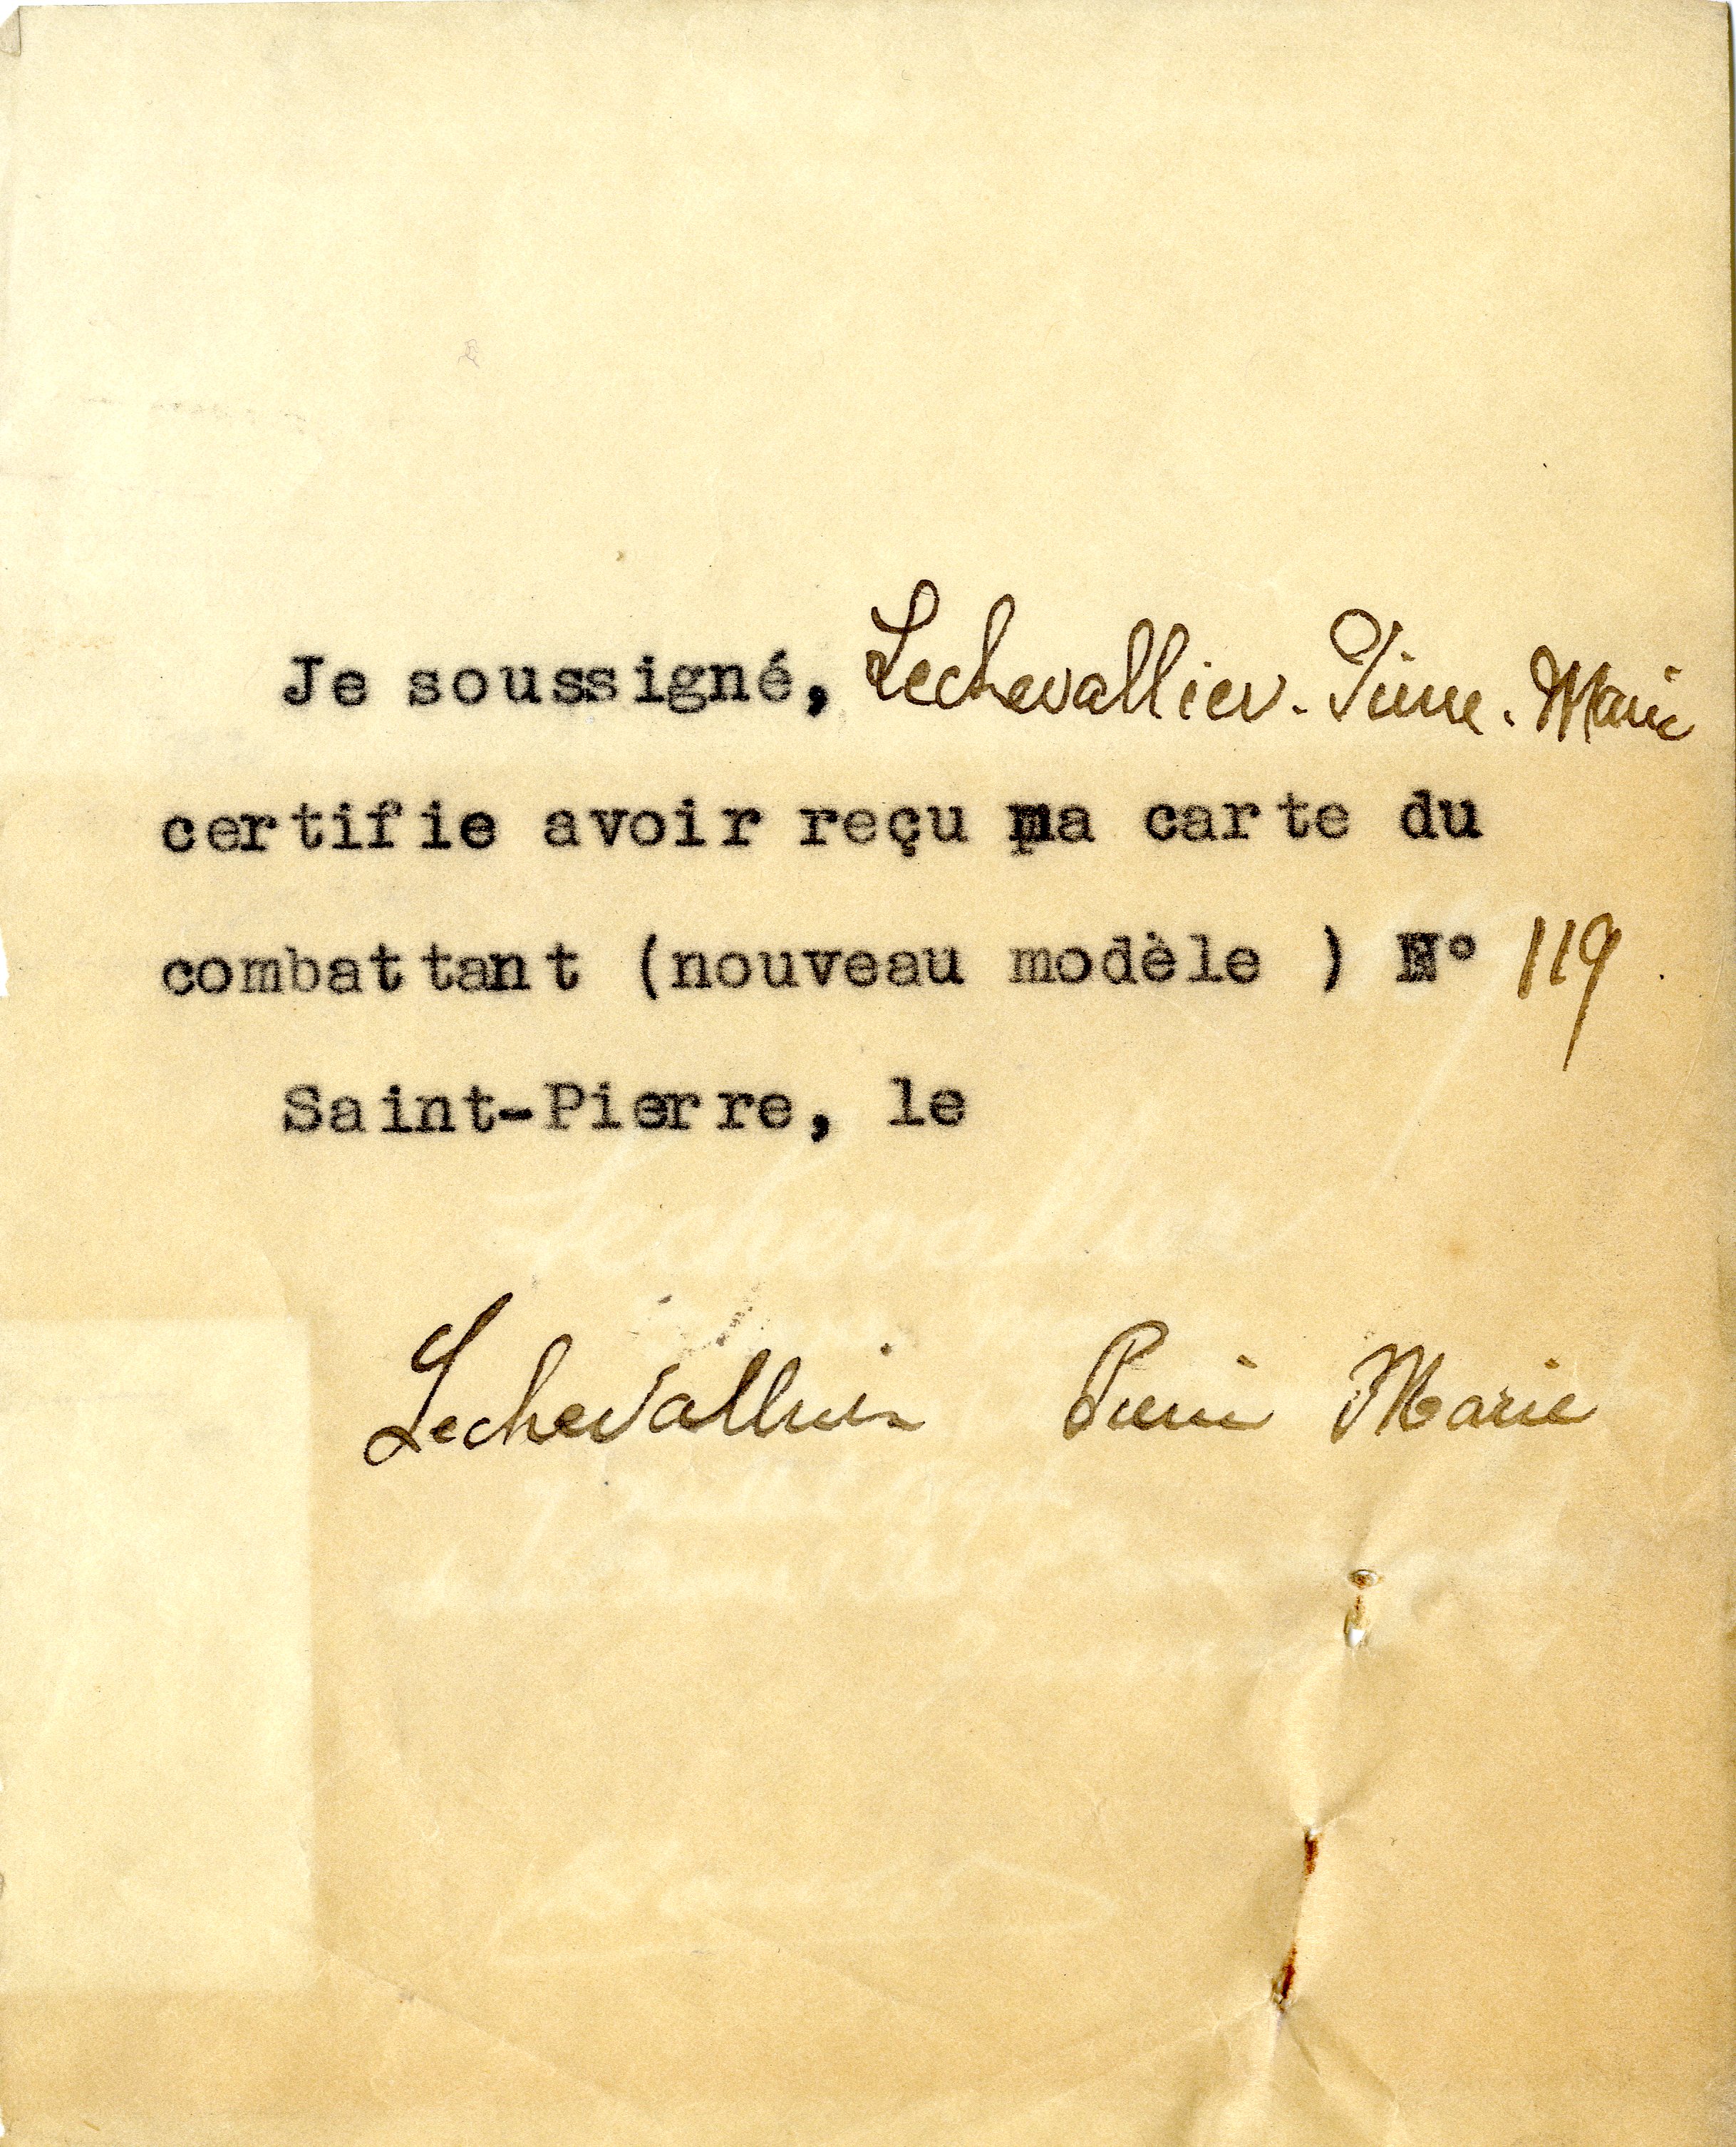 Je soussigné, Lechevallier. Pierre. Marie
certifie avoir reçu ma carte du
combattant (nouveau modèle ) N° 119
Saint-Pierre, le
Lechevallier Pierre Marie